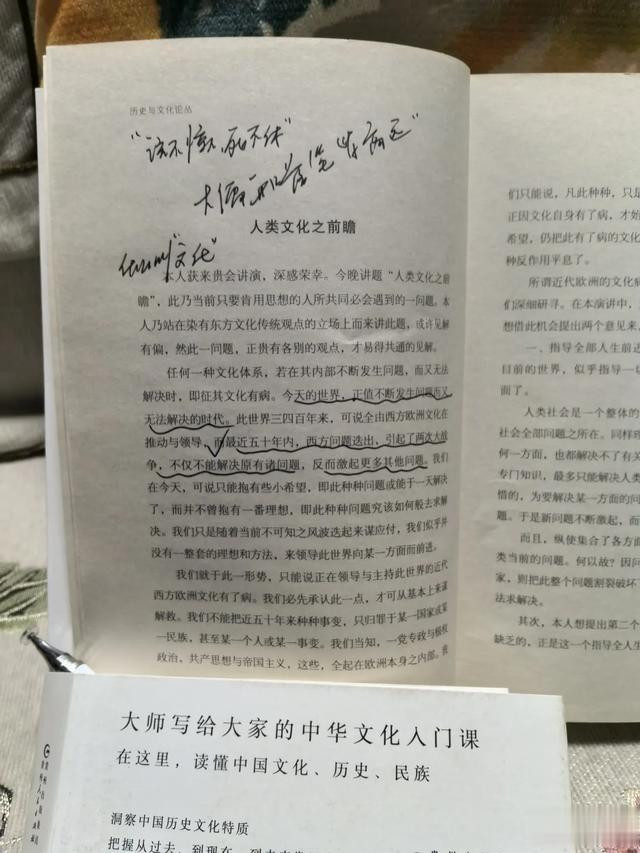 历史与文化论丛
人类文化之前瞻
本人获来贵会讲演，深感荣幸。今晚讲题“人类文化之前
瞻”，此乃当前只要肯用思想的人所共同必会遇到的一问题。本
人乃站在染有东方文化传统观点的立场上而来讲此题，或许见解
有偏，然此一问题，正贵有各别的观点，才易得共通的见解。
任何一种文化体系，若在其内部不断发生问题，而又无法
解决时，即征其文化有病。今天的世界，正值不断发生问题而又
无法解决的时代。此世界三四百年来，可说全由西方欧洲文化在
推动与领导，而最近五十年内，西方问题迭出，引起了两次大战
争，不仅不能解决原有诸问题，反而激起更多其他问题。我们
在今天，可说只能抱有些小希望，即此种种问题或能于一天解决
了，而并不曾抱有一番理想，即此种种问题究该如何般去求解
决。我们只是随着当前不可知之风波迭起来谋应付，我们似乎并
没有一整套的理想和方法，来领导此世界向某一方面而前进。
我们就于此一形势，只能说正在领导与主持此世界的近代
西方欧洲文化有了病。我们必先承认此一点，才可从基本上来谋
解救。我们不能把近五十年来种种事变，只归罪于某一国家或某
一民族，甚至某一个人或某一事变。我们当知，一党专政与极权
政治，共产思想与帝国主义，这些，全起在欧洲本身之内部。我
们只能说，凡此种种，只是
正因文化自身有了病，才始
希望，仍把此有了病的文化
种反作用平息了。
所谓近代欧洲的文化病
们深细研寻。在本演讲中，
想借此机会提出两个意见来，
一、指导全部人生前进
目前的世界，似乎指导一切
面了。
人类社会是一个整体的
社会全部问题之所在。同样理
何一方面，也都解决不了有关
专门知识，最多只能解决人类
惜的，为要解决某一方面的问
题。于是新问题不断激起，而
而且，纵使集合了各方面
类当前的问题。何以故？因问
家，则把此整个问题割裂破坏了
法求解决。
其次，本人想提出第二个
缺乏的，正是这一个指导全人生
大师写给大家的中华文化入门课
在这里，读懂中国文化、历史、民族
洞察中国历史文化特质